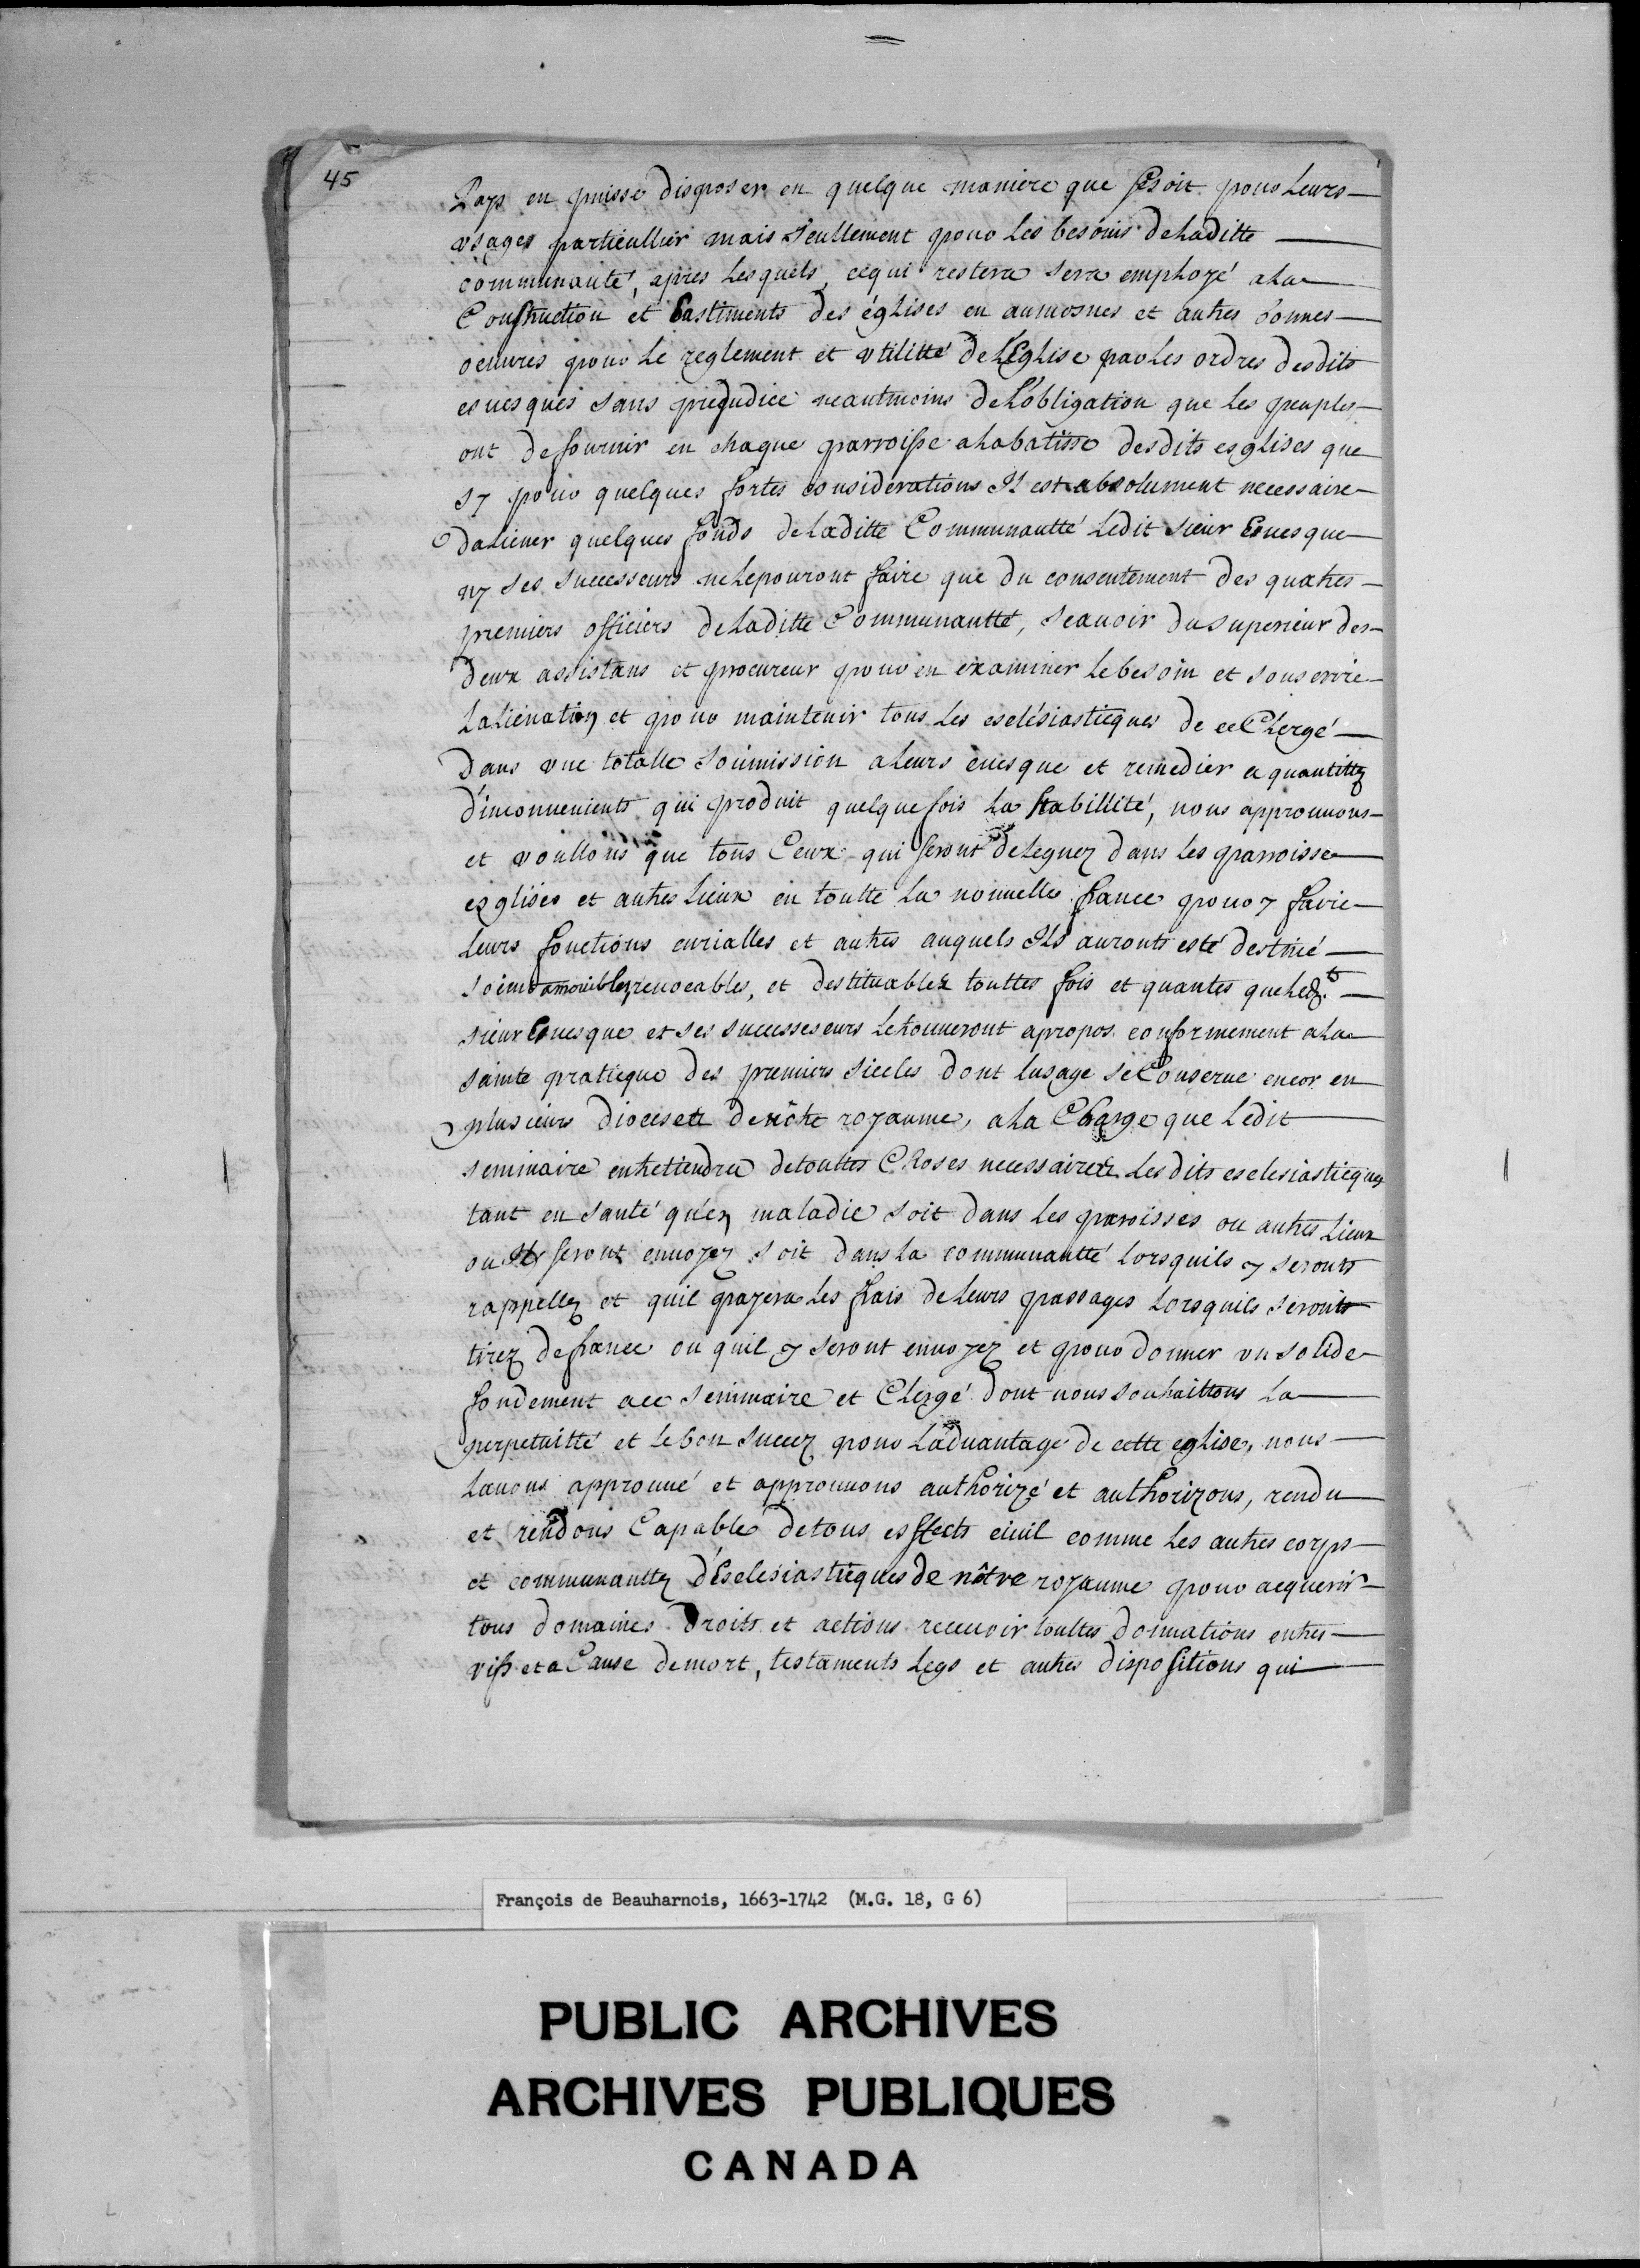 45
Pays en puisse disposer en quelque maniere que ce soit pour Leurs
usages particullier mais seullement pour Les besoins de Laditte
communauté, apres Lesquels, cequi restera sera employé ala
Construction et bastiments des églises en aumosnes et autres bonnes
oeuvres pour Le reglement et utilitté de L'Eglise par Les ordres desdits
evesques sans prejudice neantmoins de L'obligation que Les peuples
ont de fournir en chaque parroisse a La batisse desdits esglises que
sy pour quelques fortes considerations Il est absolument necessaire
daliener quelques fonds de Laditte Communautté Ledit sieur Evesque
ny ses successeurs ne Le pouront faire que du consentement des quatres
premiers officiers de Laditte Communautté, scavoir du superieur des
deux assistans et procureur pour en examiner Le besoin et souscrire
Lalienation et pour maintenir tous Les esclésiasticques de ce Clergé
dans une totalle soumission a Leurs évesque et remedier a quantittez
d'inconvenients qui produit quelque fois La stabillité, nous approuvons
et voullons que tous Ceux qui seront deleguez dans Les parroisse
esglises et autres Lieux en toutte La nouvelle france pour y faire
Leurs fonctions curialles et autres auquels Ils auronts esté destiné
soient amouibles revocables, et destituables touttes fois et quantes que Ledt
sieur Evesque et ses successeurs Le trouveront apropos conformement a La
sainte praticque des premiers siecles dont Lusage se Conserve encor en
plusieurs dioceses de nôtre royaume, a La Charge que Ledit
seminaire entretiendra de touttes Choses necessaires Lesdits esclesiasticques
tant en santé qu'en maladie soit dans Les paroisses ou autres Lieux
ou Ils seront envoyez soit dans La communautté Lorsquils y seronts
rappellez et quil payera Les frais de Leurs passages Lorsquils seronts
tirez de france ou quil y seront envoyez et pour donner un solide
fondement a ce seminaire et Clergé dont nous souhaittons La
perpetuitté et Le bon succez pour L'advantage de cette eglise, nous
Lavons approuvé et approuvons authorizé et authorizons, rendu
et rendons Capable de tous esffects civil comme Les autres corps
et communauttez d'Esclesiasticques de nôtre royaume pour acquerir
tous domaines droits et actions recevoir touttes donnations entres
vifs et a Cause de mort, testaments Legs et autres dispositions qui
François de Beauharnois, 1663-1742 (M.G. 18, G 6)
PUBLIC ARCHIVES
ARCHIVES PUBLIQUES
CANADA